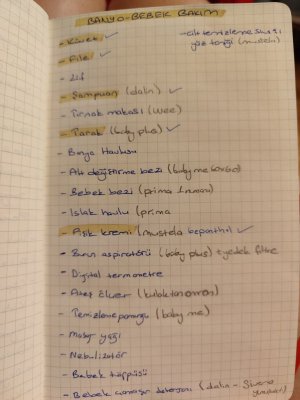 BANYO-BEBEK BAKIM
- Küvet ✓
- cilt temizleme suyu
- File ✓
göz temiği (mustela)
- Lif
- Şampuan (dalin) ✓
- Tırnak makası (wee)
- Tarak (baby plus) ✓
- Banyo Havlusu
- Alt değiştirme bezi (baby me 60x60)
- Bebek bezi (prima 1 numara)
- Islak havlu (prima
- Pişik kremi (mustela bepanthol) ✓
- Burun aspiratörü (baby plus) + yedek filtre
- Digital termometre
- Ateş ölçer (kulaktan
- Temizleme pamuğu (baby me)
- Masaj yağı
- Nebulizatör
- Bebek törpüsü
- Bebek çamaşır deterjanı (dalin - Siveno